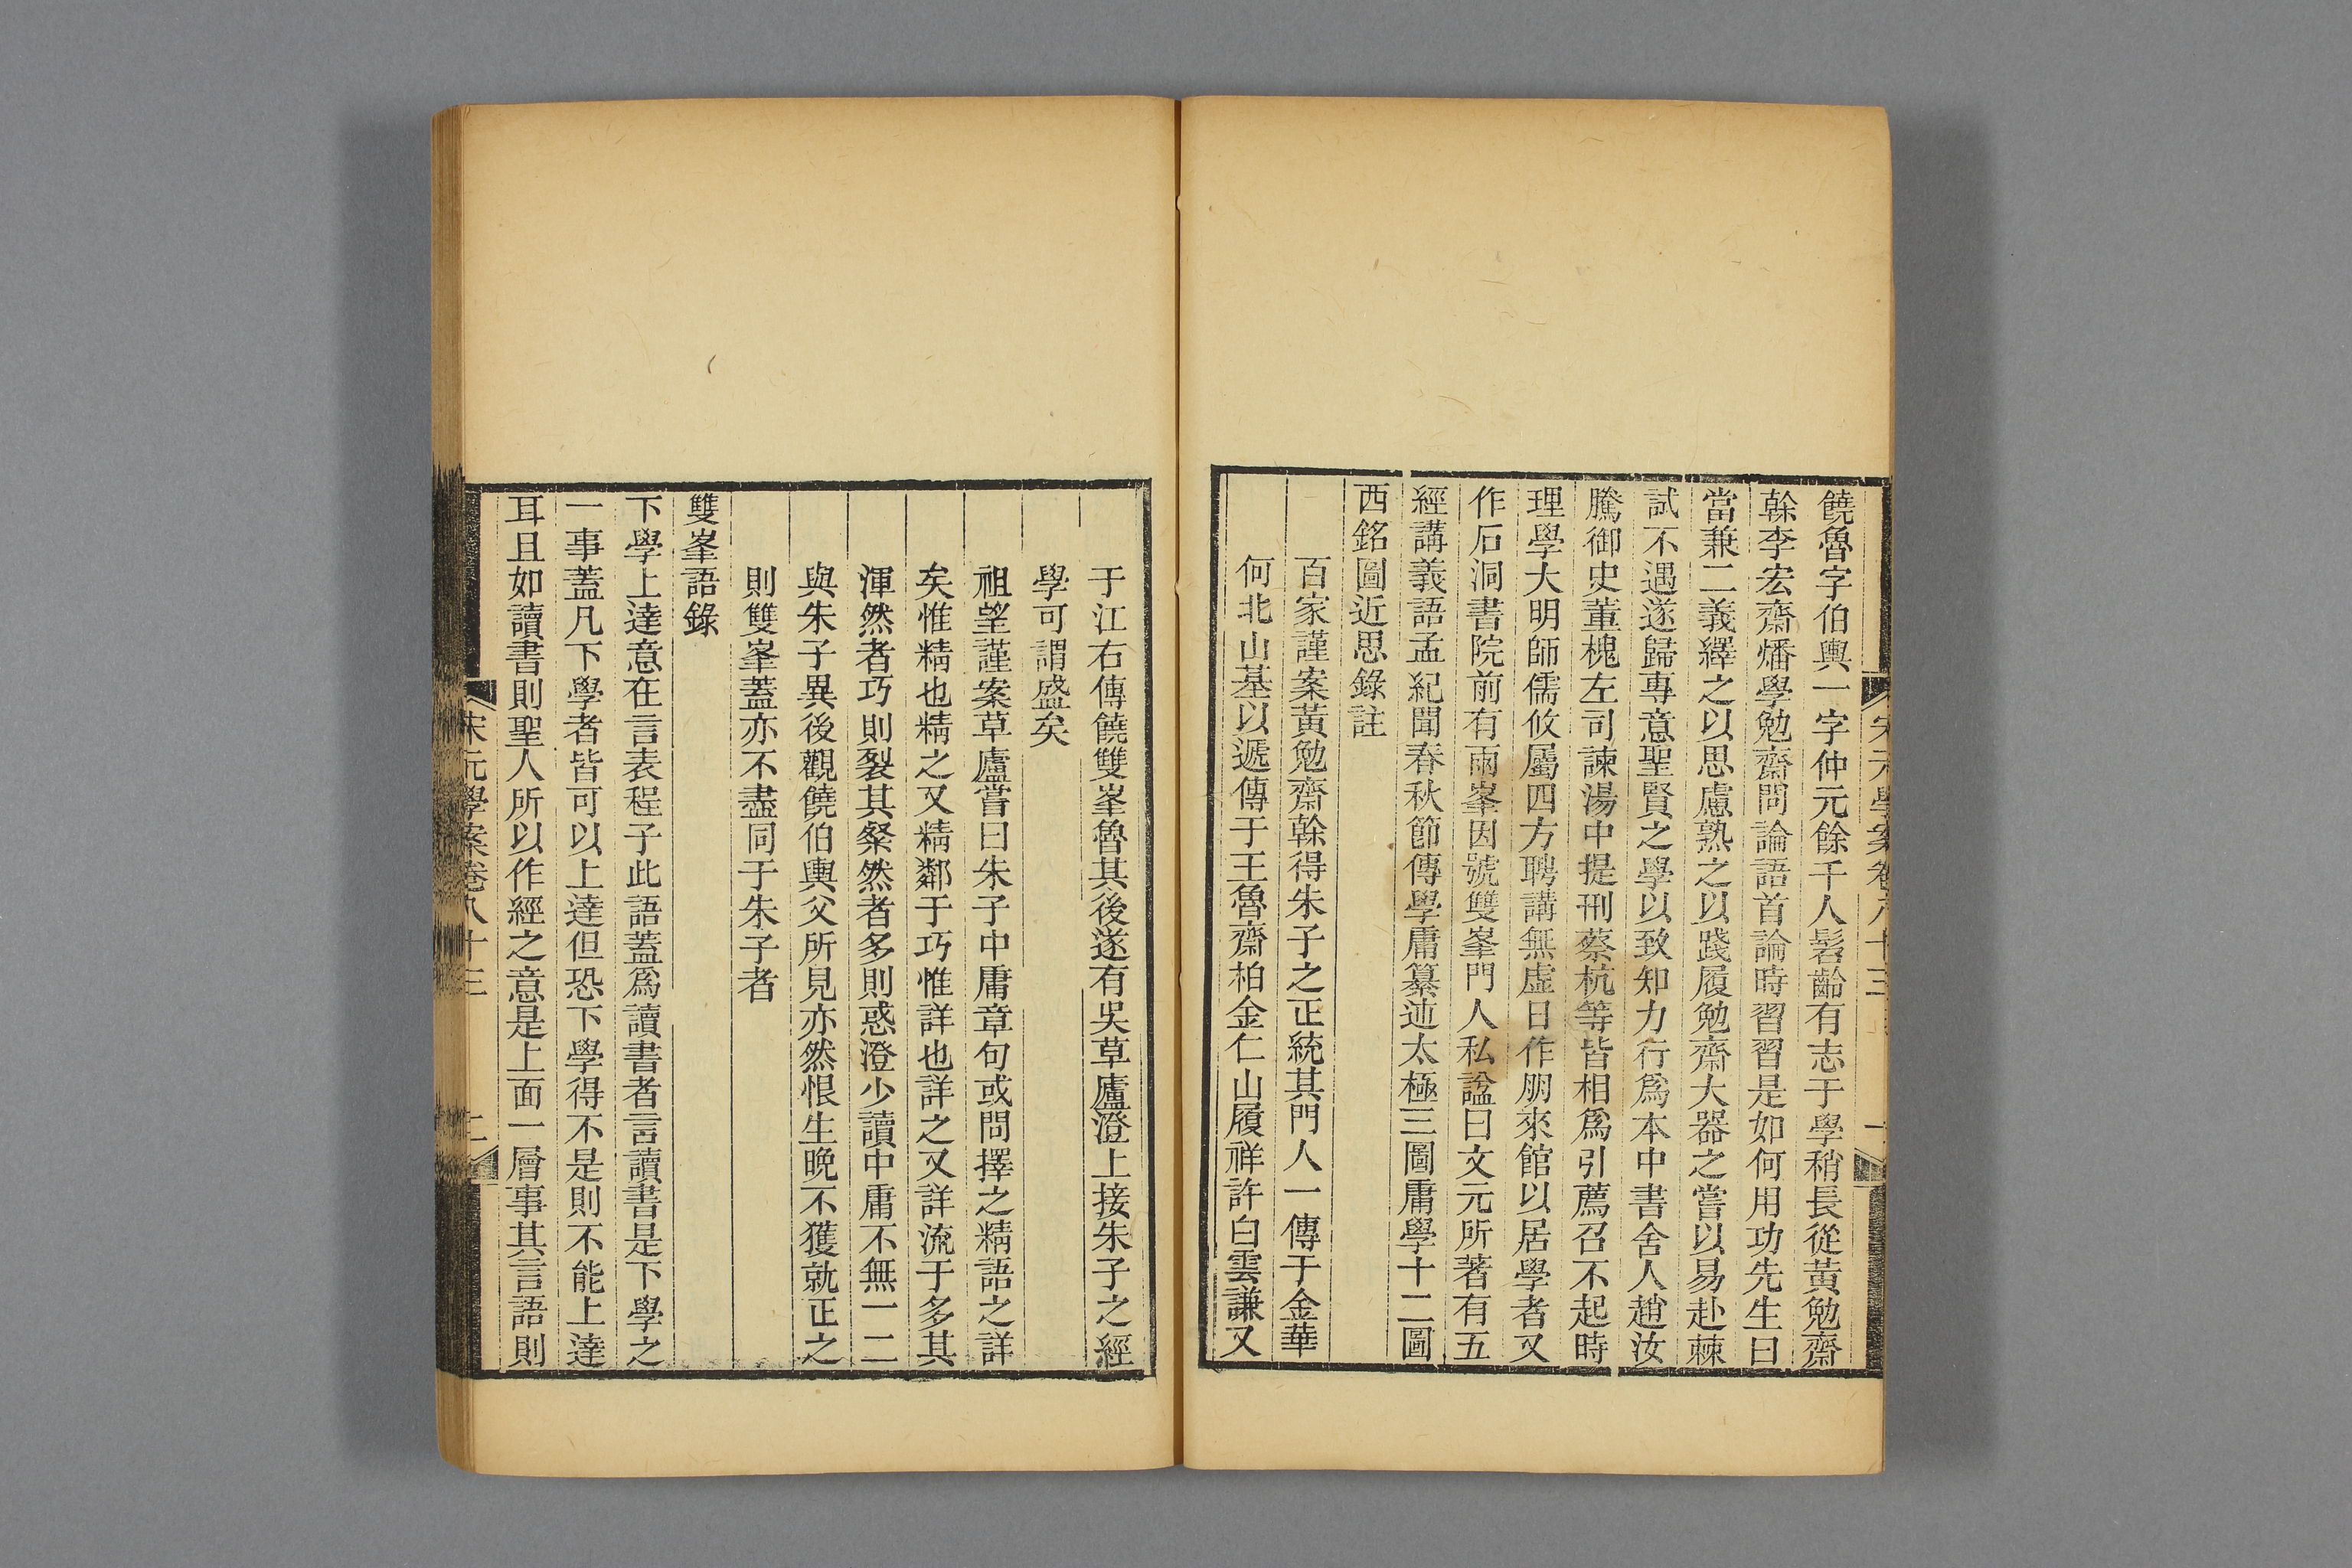 饒魯字伯輿一字仲元餘千人髫齡有志于學稍長從黃勉齋
榦李宏齋燔學勉齋問論語首論時習習是如何用功先生曰
當兼二義繹之以思慮熟之以踐履勉齋大器之嘗以易赴棘
試不遇遂歸專意聖賢之學以致知力行爲本中書舍人趙汝
騰御史董槐左司諫湯中提刑蔡杭等皆相爲引薦召不起時
理學大明師儒攸屬四方聘講無虛日作朋來館以居學者又
作石洞書院前有兩峯因號雙峯門人私諡曰文元所著有五
經講義語孟紀聞春秋節傳學庸纂述太極三圖庸學十二圖
西銘圖近思錄註
百家謹案黃勉齋榦得朱子之正統其門人一傳于金華
何北山基以遞傳于王魯齋柏金仁山履祥許白雲謙又
于江右傳饒雙峯魯其後遂有吳草廬澄上接朱子之經
學可謂盛矣
祖望謹案草廬嘗曰朱子中庸章句或問擇之精語之詳
矣惟精也精之又精鄰于巧惟詳也詳之又詳流于多其
渾然者巧則裂其粲然者多則惑澄少讀中庸不無一二
與朱子異後觀饒伯輿父所見亦然恨生晚不獲就正之
則雙峯蓋亦不盡同于朱子者
雙峯語錄
下學上達意在言表程子此語蓋爲讀書者言讀書是下學之
一事蓋凡下學者皆可以上達但恐下學得不是則不能上達
耳且如讀書則聖人所以作經之意是上面一層事其言語則
宋元學案卷八十三
二